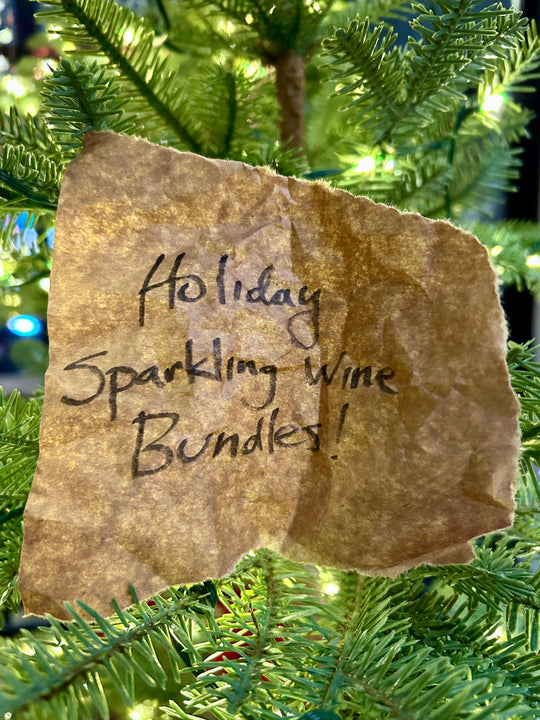 Holiday
Sparkling Wine
Bundles!